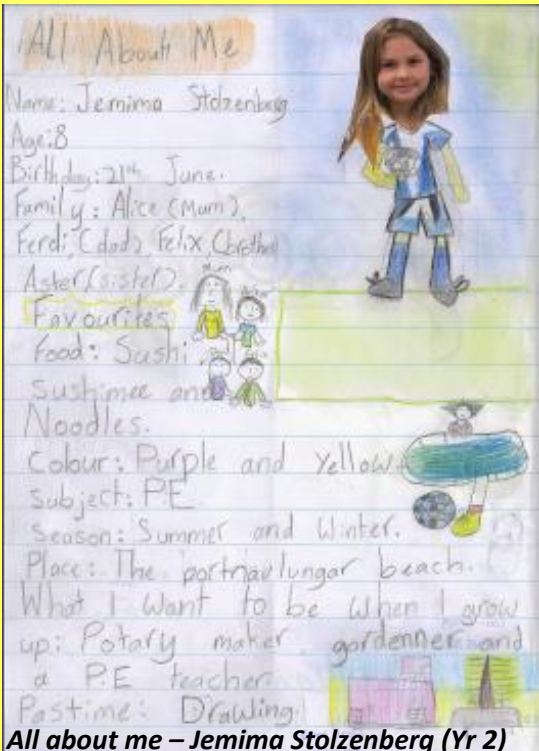 All About Me
Name: Jemima Stolzenberg
Age:8
Birthday: 21st June.
Family: Alice (Mum),
Ferdi, (dad), Felix, (brother)
Aster, (sister).
Mum
Favourites
Food: Sushi
Sushimee and
Noodles.
Colour: Purple and Yellow.
Subject: P.E
Season: Summer and Winter.
Place: The portnoulungar beach.
What I want to be when I grow
up: Potary maker, gardenner and
a P.E teacher.
Pastime: Drawling.
All about me – Jemima Stolzenberg (Yr 2)